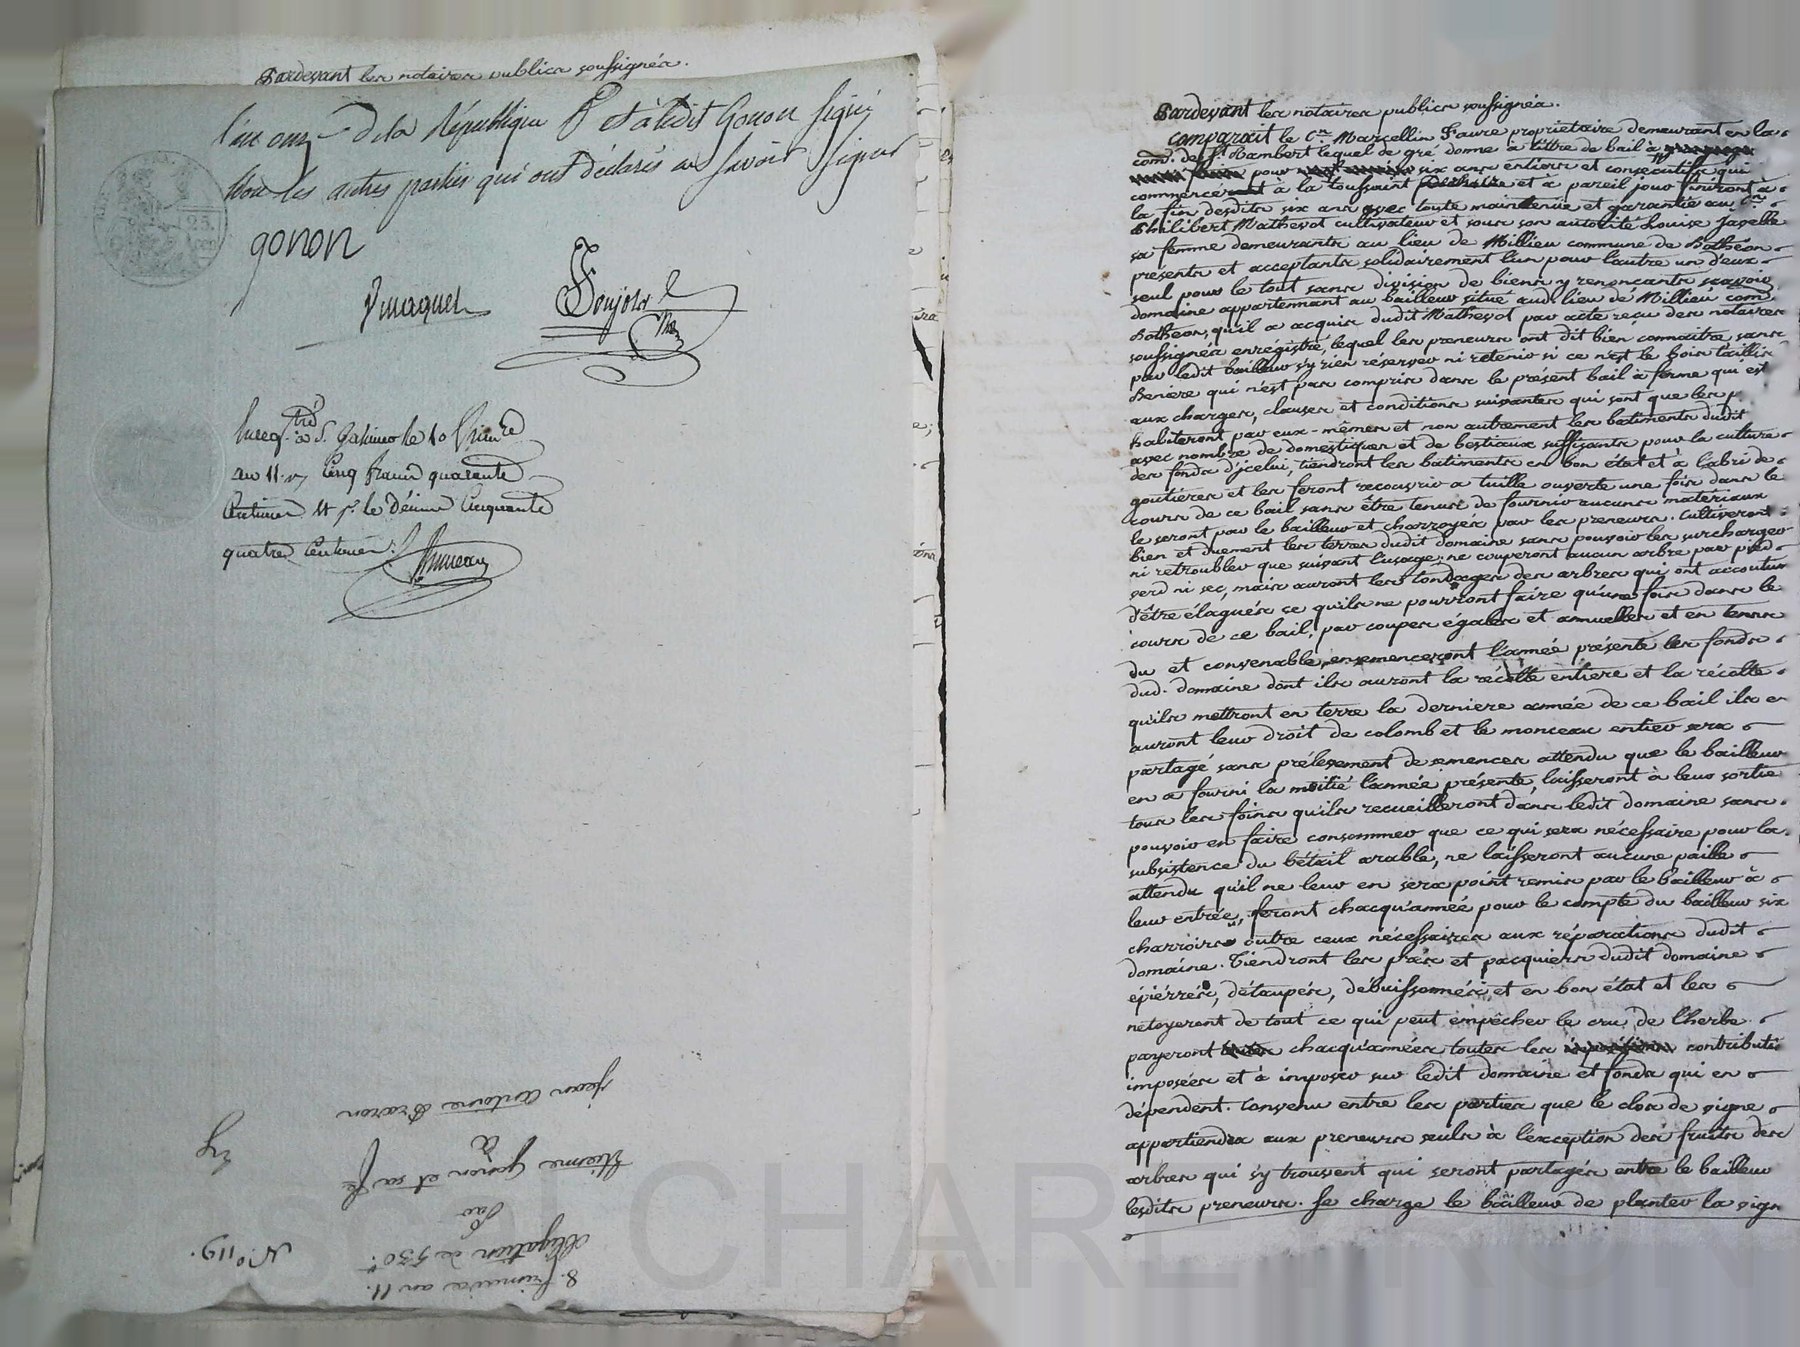 Pardevant les notaires publics soussignés.
l'an onze de la République & et à ledit Gonon signé
non les autres parties qui ont déclarés ne savoir signer
25
gonon
Enregtré à S. Galmier le 10 frimre
an 11. r/ Cinq francs quarante
Centimes et pr. le Décime Cinquante
quatre Centimes.
8. frimaire an 11.
obligation de 530 #
Par
Etienne Gonon et sa fe
à
Jean Antoine
N.o 119.
Pardevant les notaires publics soussignés.
comparait le Cn Marcellin Faure propriétaire demeurant en la
com. de St. Rambert lequel de gré donne à titre de bail à
pour six ans entiers et consécutifs qui
commencé à la toussaint et à pareil jour finiront à
la fin desdits six ans avec toute maintenue et garantie au Cn
Philibert Mathevot cultivateur et sous son autorité Louise Javelle
sa femme demeurants au lieu de Millieu commune de Bothéon
présents et acceptants solidairement l'un pour l'autre un d'eux
seul pour le tout sans division de biens y renoncants savoir
domaine appartennant au bailleur situé aud. lieu de Millieu com.
Bothéon, qu'il a acquis dudit Mathevot par acte reçu des notaires
soussignés enrégistré, lequel les preneurs ont dit bien connaitre sans
par ledit bailleur s'y rien réserver ni retenir si ce n'est le bois taillis
qui n'est pas compris dans le présent bail à ferme qui est
aux charges, clauses et conditions suivantes qui sont que les p
habiteront par eux-mêmes et non autrement les batiments dudit
avec nombre de domestiques et de bestiaux suffisants pour la culture
des fonds d'icelui, tiendront les batiments en bon état et à l'abri de
goutières et les feront recouvrir a tuille ouverte une fois dans le
cours de ce bail sans être tenus de fournir aucuns matériaux
le seront par le bailleur et charroyés par les preneurs. Cultiveront
bien et duement les terres dudit domaine sans pouvoir les surcharger
ni retroubler que suivant l'usage, ne couperont aucun arbre par pied
verd ni sec, mais auront les tondages des arbres qui ont accoutum
d'être élagués ce qu'ils ne pourront faire qu'une fois dans le
cours de ce bail, par coupes egales et annuelles et en tems
du et convenable, ensemenceront l'année présente les fonds
dud. domaine dont ils auront la récolte entiere et la récolte
qu'ils mettront en terre la derniere année de ce bail ils en
auront leur droit de colomb et le monceau entier sera
partagé sans prélevement de semences attendu que le bailleur
en a fourni la moitié l'année présente, laisseront à leur sortie
tous les foins qu'ils recueilleront dans ledit domaine sans
pouvoir en faire consommer que ce qui sera nécessaire pour la
subsistence du bétail arable, ne laisseront aucune paille
attendu qu'il ne leur en sera point remis par le bailleur à
leur entrée, feront chacqu'année pour le compte du bailleur six
charrois outre ceux nécessaires aux réparations dudit
domaine. Tiendront les prés et pacquiers dudit domaine
épiérrés, détaupés, débuissonnés, et en bon état et les
netoyeront de tout ce qui peut empêcher le cru de l'herbe
payeront chacqu'années toutes les contributi
imposées et à imposer sur ledit domaine et fonds qui en
dépendent. Convenu entre les parties que le clos de vigne
appartiendra aux preneurs seuls à l'exception des fruits des
arbres qui s'y trouvent qui seront partagés entre le bailleur
lesdits preneurs. Se charge le bailleur de planter la vign